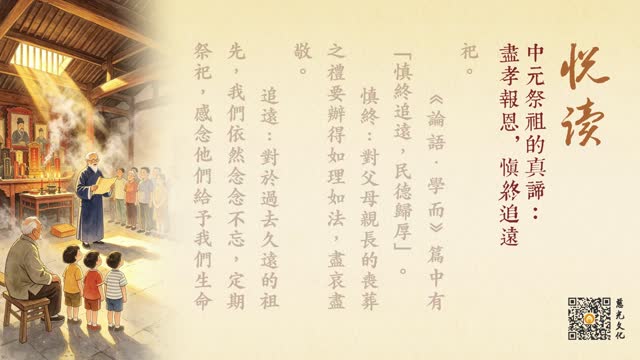 悦读
中元祭祖的真諦：
盡孝報恩，慎終追遠
祀。
《論語·學而》篇中有
「慎終追遠，民德歸厚」。
慎終：對父母親長的喪葬
之禮要辦得如理如法，盡哀盡
敬。
追遠：對於過去久遠的祖
先，我們依然念念不忘，定期
祭祀，感念他們給予我們生命
光文化